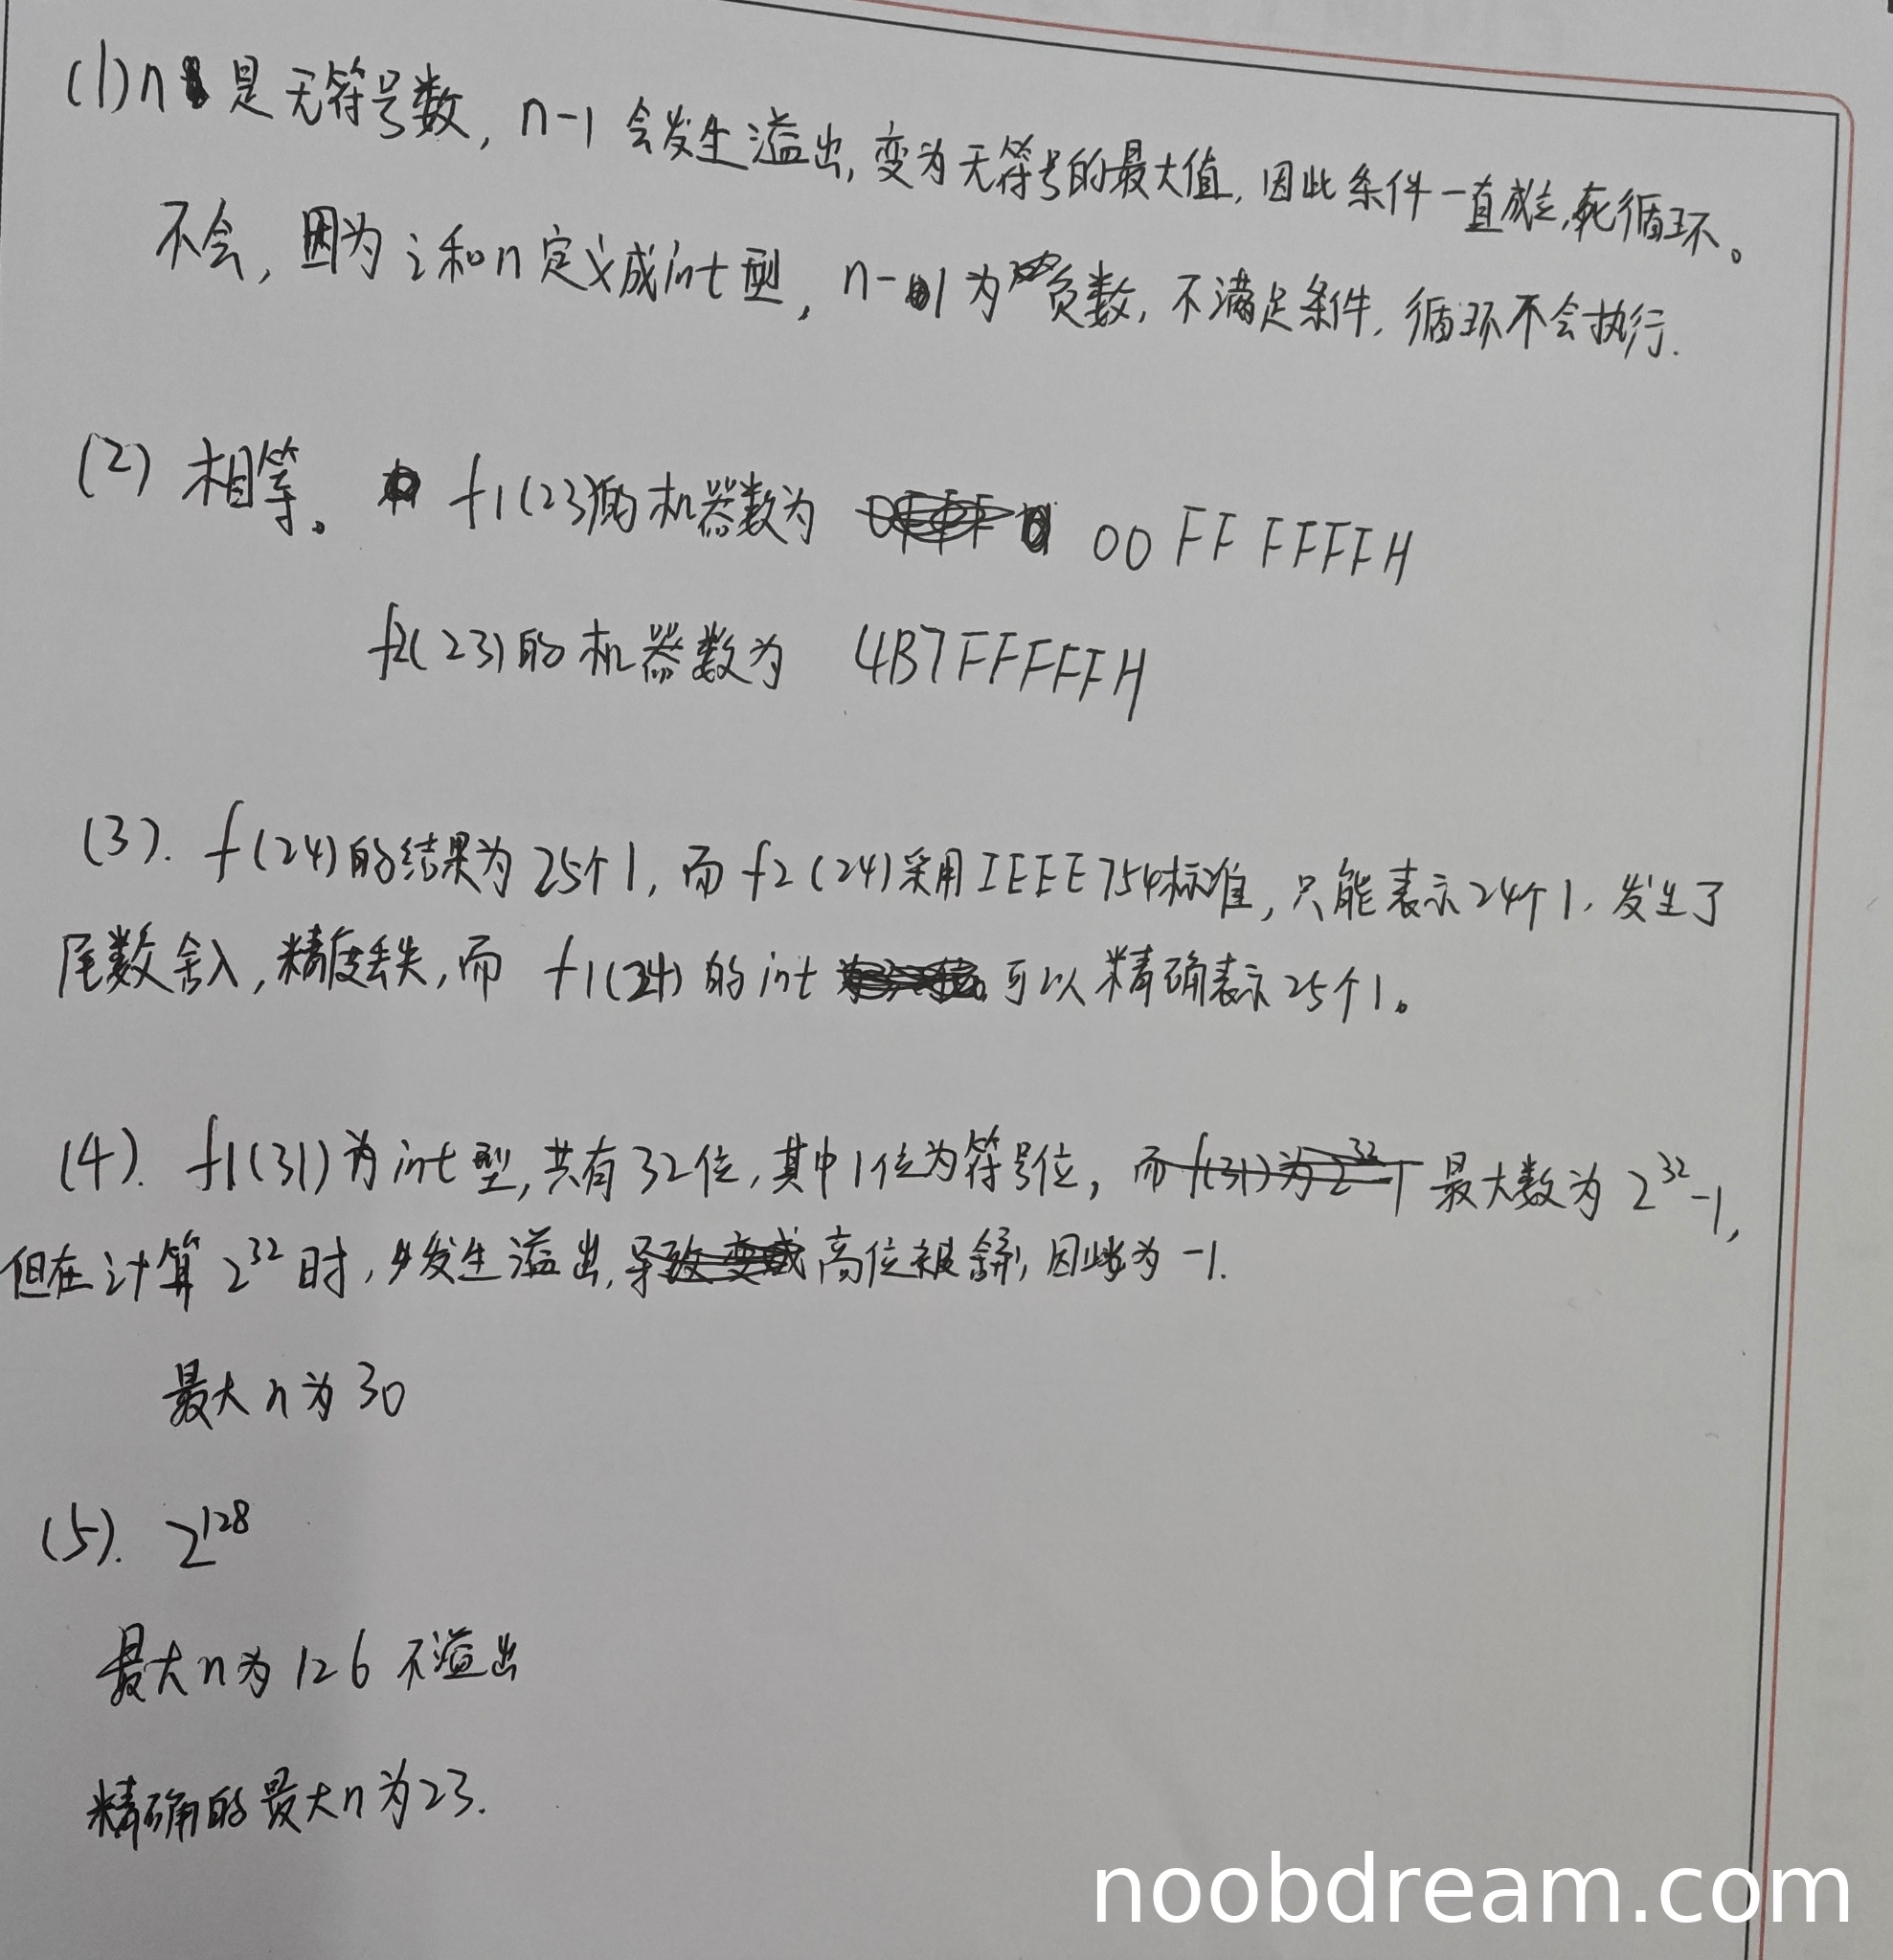 (1) n 是无符号数, n-1 会发生溢出, 变为无符号的最大值, 因此条件一直成立, 死循环。
不会, 因为 i 和 n 定义成 int 型, n-1 为负数, 不满足条件, 循环不会执行.
(2) 相等。 f1(23)的机器数为 00FF FFFFH
f2(23)的机器数为 4B7FFFFFH
(3). f(24)的结果为25个1, 而 f2(24)采用IEEE754标准, 只能表示24个1, 发生了
尾数舍入, 精度丢失, 而 f1(24)的int 可以精确表示25个1。
(4). f1(31)为int型, 共有32位, 其中1位为符号位, 最大数为 2³²-1,
但在计算 2³² 时, 发生溢出, 高位被舍弃, 因此为 -1.
最大n为30
(5). 2¹²⁸
最大n为126 不溢出
精确的最大n为23.
noobdream.com